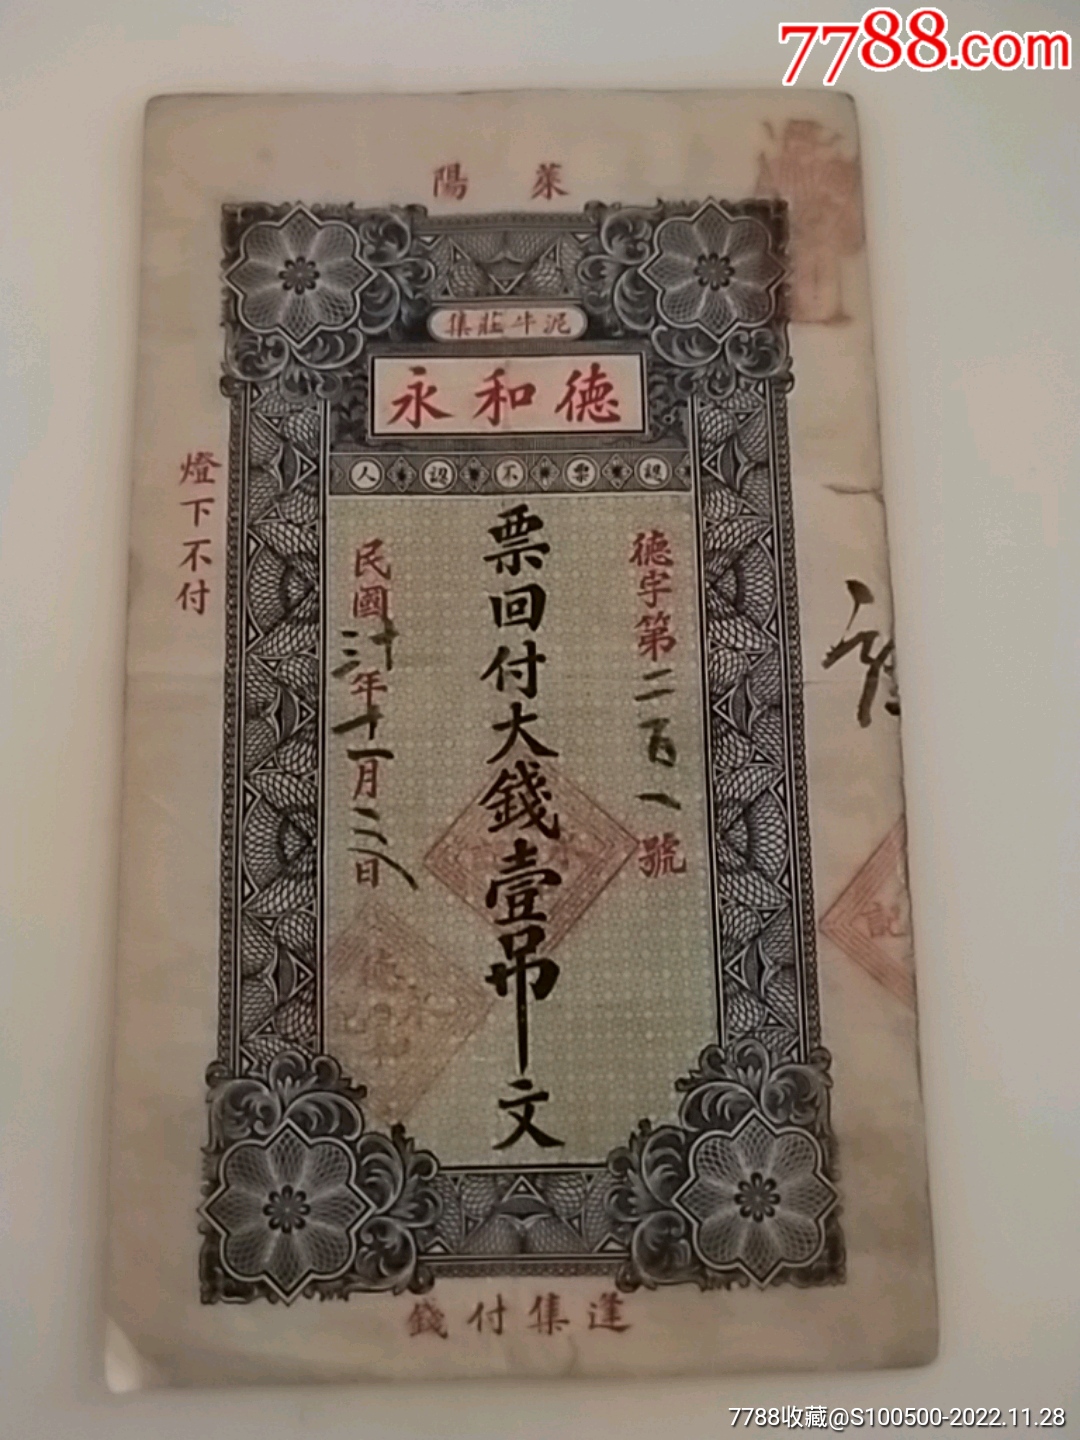 7788.com
萊陽
泥牛莊集
德和永
認票不認人
德字第二百一號
票回付大錢壹吊文
民國三十年十一月二日
燈下不付
逢集付錢
記
7788收藏@S100500-2022.11.28